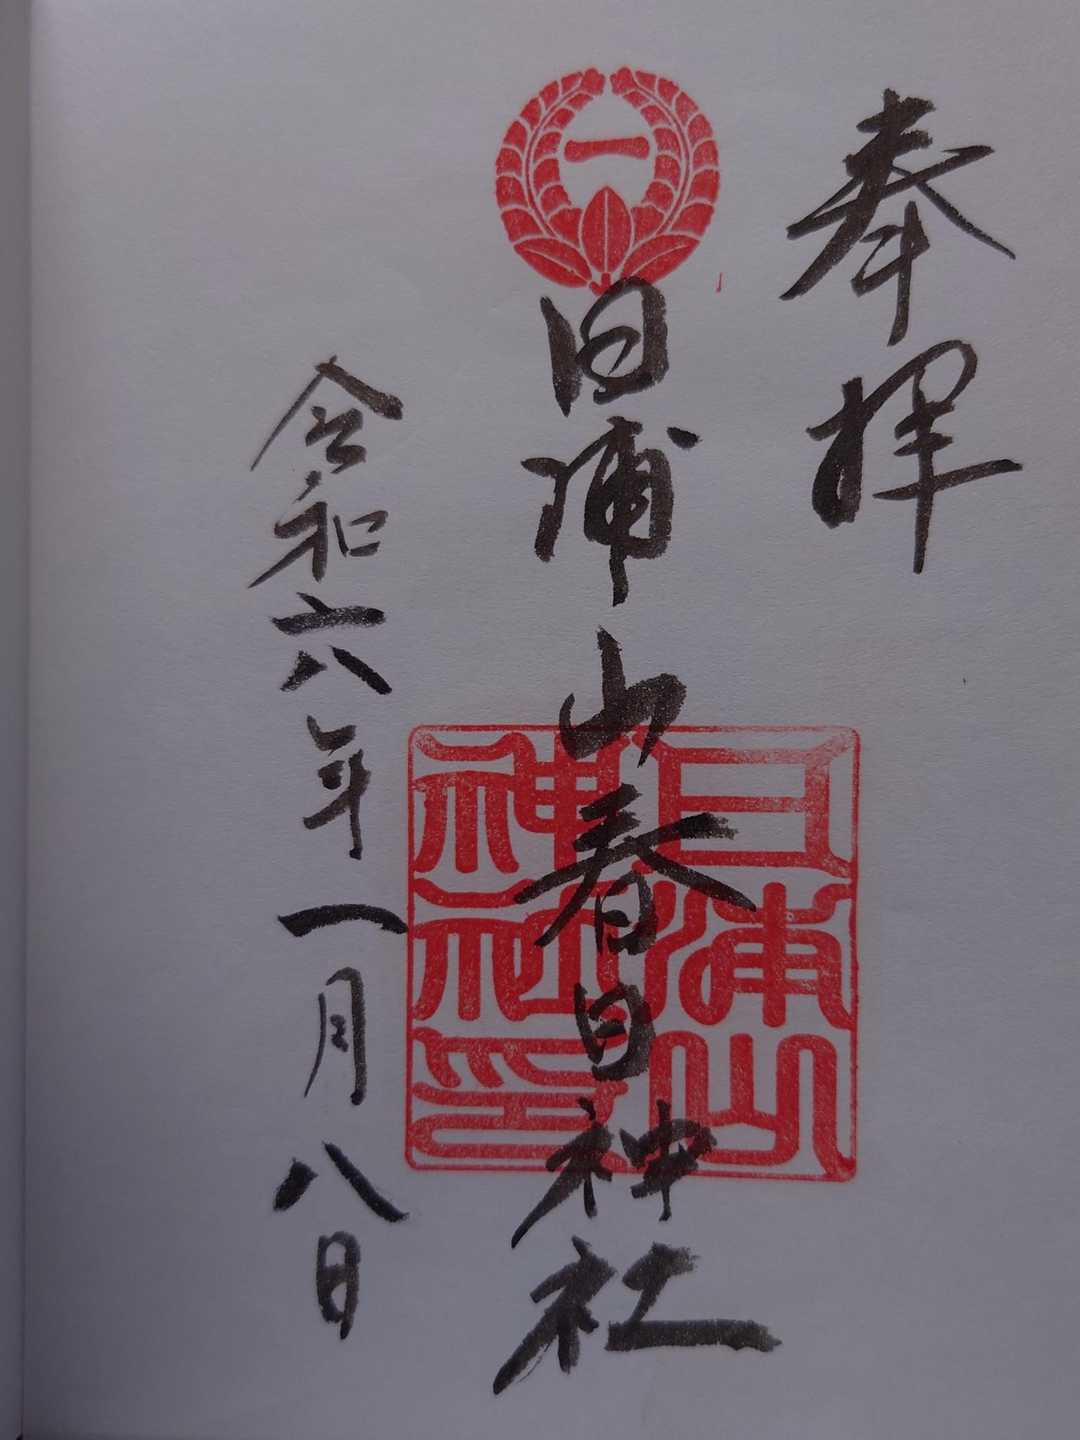 奉拝
一
日浦山春日神社
日浦山
神社印
令和六年一月八日